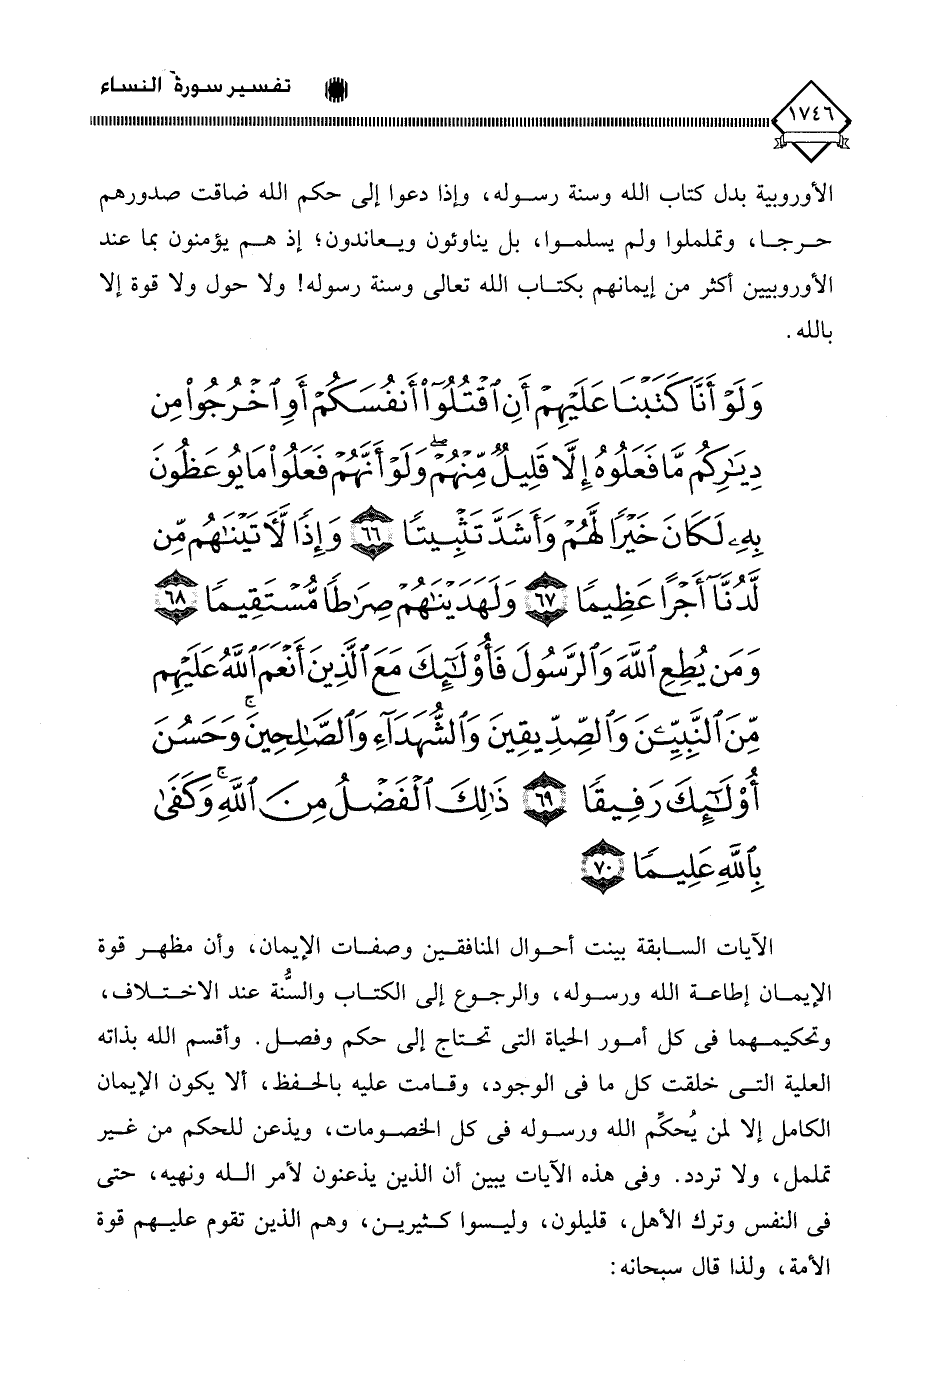 تفسير سورة النساء
١٧٤٦
الأوروبية بدل كتاب الله وسنة رسوله، وإذا دعوا إلى حكم الله ضاقت صدورهم
حرجا، وتململوا ولم يسلموا، بل يناوئون ويعاندون؛ إذ هم يؤمنون بما عند
الأوروبيين أكثر من إيمانهم بكتاب الله تعالى وسنة رسوله! ولا حول ولا قوة إلا
بالله.
وَلَوْ أَنَّا كَتَبْنَا عَلَيْهِمْ أَنِ ٱقْتُلُوٓا۟ أَنفُسَكُمْ أَوِ ٱخْرُجُوا۟ مِن
دِيَـٰرِكُم مَّا فَعَلُوهُ إِلَّا قَلِيلٌ مِّنْهُمْ ۖ وَلَوْ أَنَّهُمْ فَعَلُوا۟ مَا يُوعَظُونَ
بِهِۦ لَكَانَ خَيْرًا لَّهُمْ وَأَشَدَّ تَثْبِيتًا ٦٦ وَإِذًا لَّـَٔاتَيْنَـٰهُم مِّن
لَّدُنَّآ أَجْرًا عَظِيمًا ٦٧ وَلَهَدَيْنَـٰهُمْ صِرَٰطًا مُّسْتَقِيمًا ٦٨
وَمَن يُطِعِ ٱللَّهَ وَٱلرَّسُولَ فَأُو۟لَـٰٓئِكَ مَعَ ٱلَّذِينَ أَنْعَمَ ٱللَّهُ عَلَيْهِم
مِّنَ ٱلنَّبِيِّـۧنَ وَٱلصِّدِّيقِينَ وَٱلشُّهَدَآءِ وَٱلصَّـٰلِحِينَ ۚ وَحَسُنَ
أُو۟لَـٰٓئِكَ رَفِيقًا ٦٩ ذَٰلِكَ ٱلْفَضْلُ مِنَ ٱللَّهِ ۚ وَكَفَىٰ
بِٱللَّهِ عَلِيمًا ٧٠
الآيات السابقة بينت أحوال المنافقين وصفات الإيمان، وأن مظهر قوة
الإيمان إطاعة الله ورسوله، والرجوع إلى الكتاب والسُّنة عند الاختلاف،
وتحكيمهما فى كل أمور الحياة التى تحتاج إلى حكم وفصل. وأقسم الله بذاته
العلية التى خلقت كل ما فى الوجود، وقامت عليه بالحفظ، ألا يكون الإيمان
الكامل إلا لمن يُحكِّم الله ورسوله فى كل الخصومات، ويذعن للحكم من غير
تململ، ولا تردد. وفى هذه الآيات يبين أن الذين يذعنون لأمر الله ونهيه، حتى
فى النفس وترك الأهل، قليلون، وليسوا كثيرين، وهم الذين تقوم عليهم قوة
الأمة، ولذا قال سبحانه: